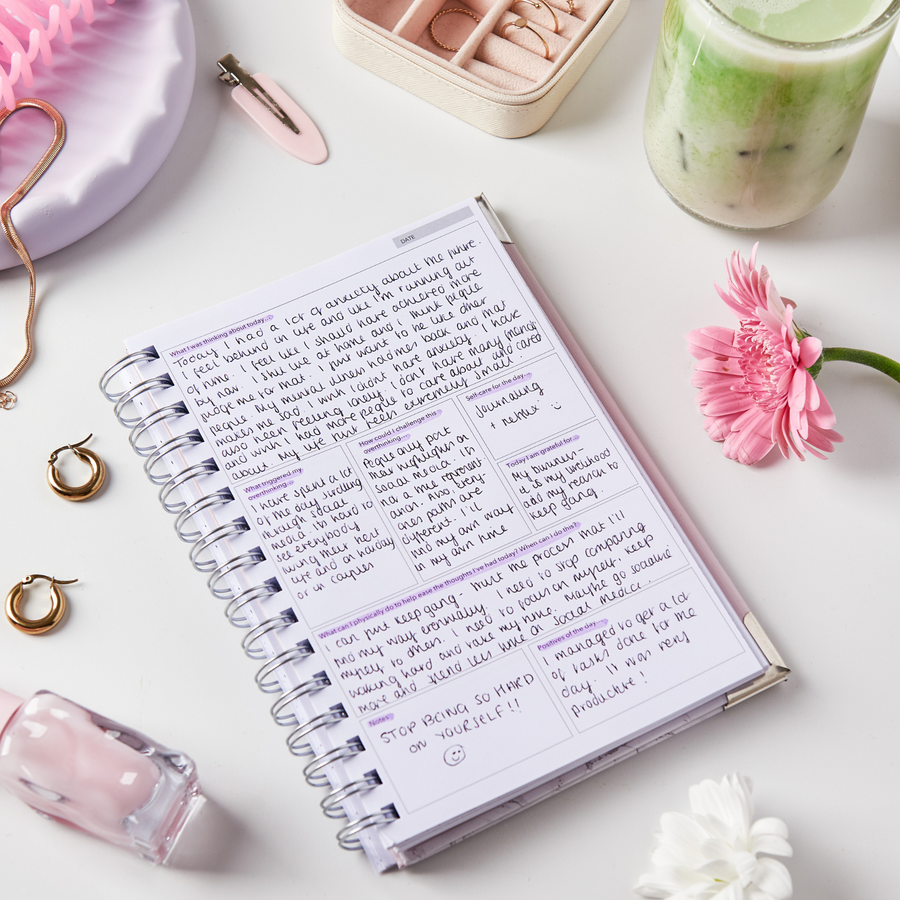 DATE
What I was thinking about today...
Today I had a lot of anxiety about the future.
I feel behind in life and like I'm running out
of time. I feel like I should have achieved more
by now. I still live at home and I think people
judge me for that. I just want to be like other
people. My mental illness holds me back and that
makes me sad. I wish I didn't have anxiety. I have
also been feeling lonely. I don't have many friends
and wish I had more people to care about who cared
about me. My life just feels extremely small.
What triggered my
overthinking...
I have spent a lot
of the day scrolling
through social
media. It's hard to
see everybody
living their best
life and on holiday
or in couples
How could I challenge this
overthinking...
People only post
their highlights on
social media. It's
not a true represent
ation. Also every-
ones paths are
different. I'll
find my own way
in my own time
Self-care for the day...
Journaling
+ netflix
Today I am grateful for...
My business -
it is my livelihood
and my reason to
keep going.
What can I physically do to help ease the thoughts I've had today? When can I do this?
I can just keep going. Trust the process that I'll
find my way eventually. I need to stop comparing
myself to others. I need to focus on myself. Keep
working hard and take my time. Maybe go socialise
more and spend less time on social media.
Notes
STOP BEING SO HARD
ON YOURSELF!!
Positives of the day...
I managed to get a lot
of tasks done for the
day. It was very
productive!